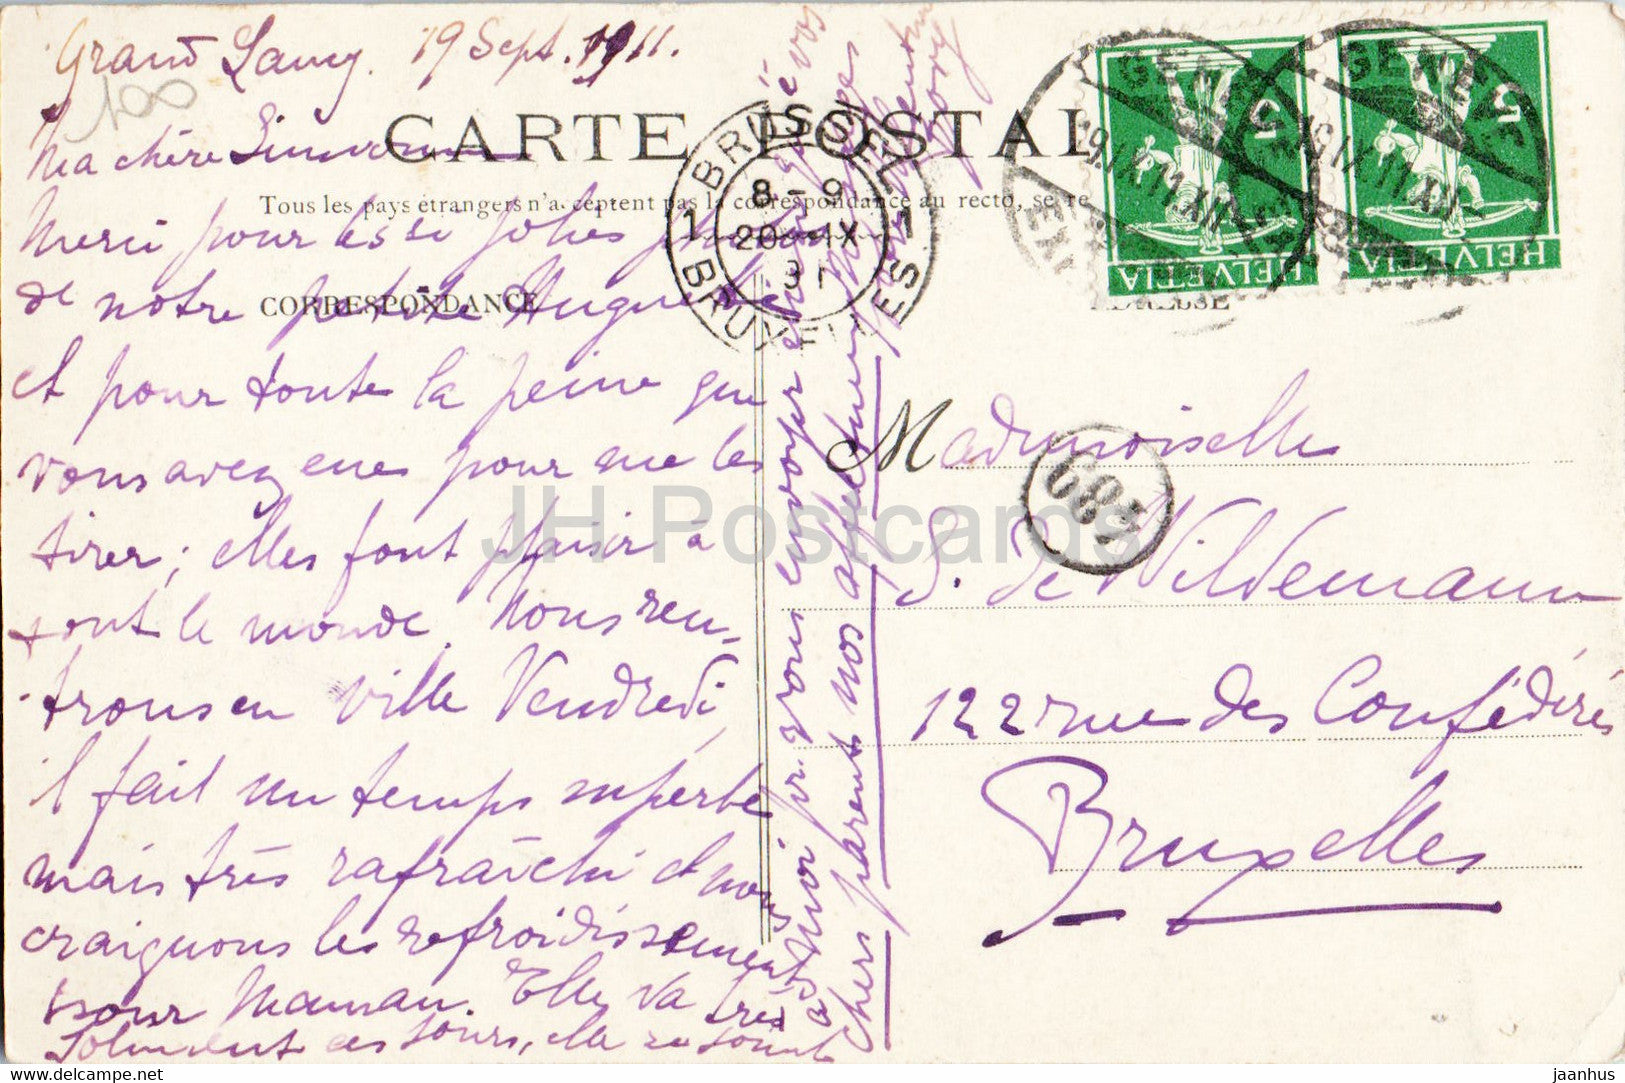 Grand Lancy. 19 Sept. 1911.
100
CARTE POSTALE
Ma chère
Tous les pays étrangers n'acceptent pas la correspondance au recto, se re
Merci pour les si jolies photos
de notre petite Huguette
CORRESPONDANCE
ADRESSE
et pour toute la peine que
vous avez eue pour me les
tirer; elles font plaisir à
tout le monde. Nous ren-
trons en ville Vendredi,
il fait un temps superbe
mais très rafraîchi et nous
craignons les refroidissements
pour Maman. Elle va très
ces jours, elle se joint
à moi pr. vous envoyer
chers parents nos affectueux
BRÜSSEL
1 8-9 1
20 IX
BRUXELLES
GENÈVE
GENÈVE
5
5
HELVETIA
HELVETIA
Mademoiselle
S. de Wildemann
122 rue des Confédérés
Bruxelles
JH Postcards
www.delcampe.net
jaanhus